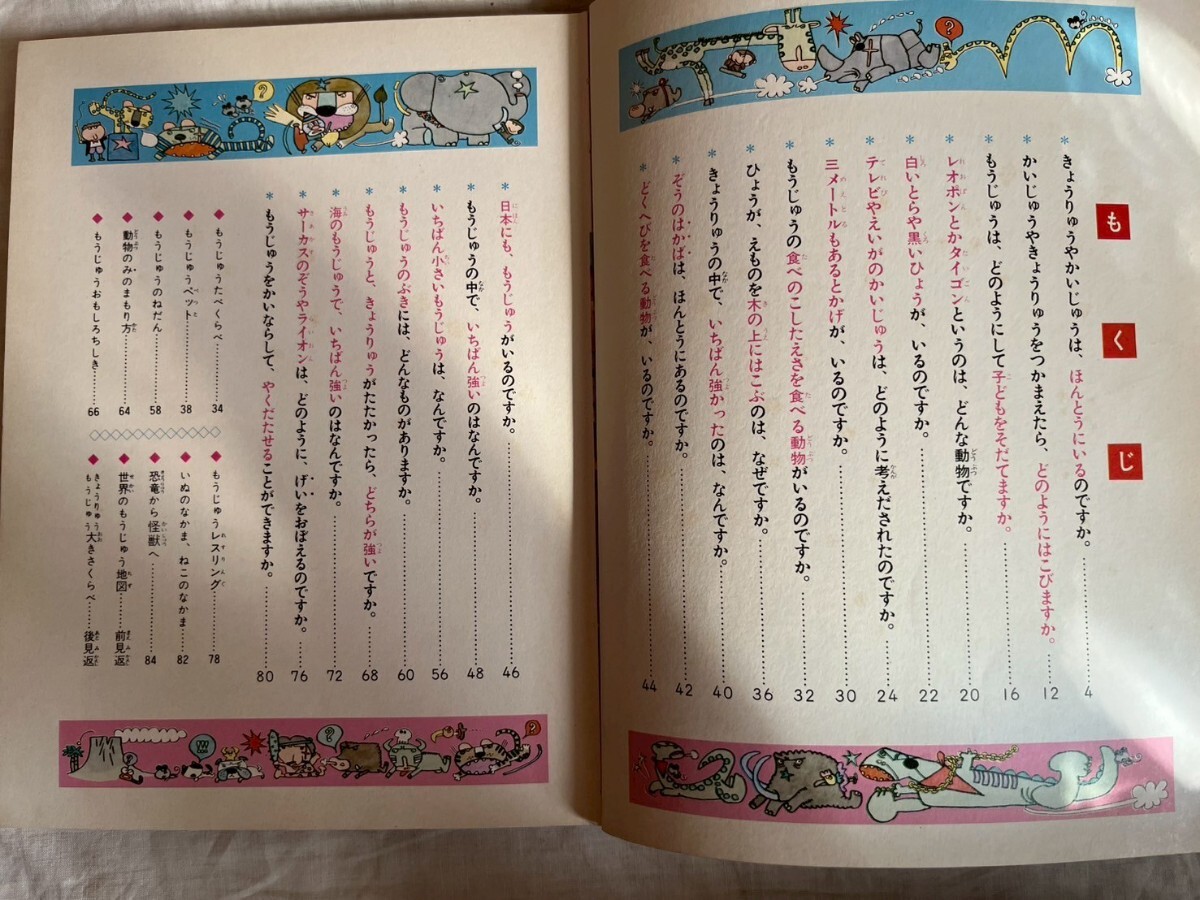 もくじ
＊きょうりゅうやかいじゅうは、ほんとうにいるのですか。……4
＊かいじゅうやきょうりゅうをつかまえたら、どのようにはこびますか。……12
＊もうじゅうは、どのようにして子どもをそだてますか。……16
＊レオポンとかタイゴンというのは、どんな動物ですか。……20
＊白いとらや黒いひょうが、いるのですか。……22
＊テレビやえいがのかいじゅうは、どのように考えだされたのですか。……24
＊三メートルもあるとかげが、いるのですか。……30
＊もうじゅうの食べのこしたえさを食べる動物がいるのですか。……32
＊ひょうが、えものを木の上にはこぶのは、なぜですか。……36
＊きょうりゅうの中で、いちばん強かったのは、なんですか。……40
＊ぞうのはかばは、ほんとうにあるのですか。……42
＊どくへびを食べる動物が、いるのですか。……44
＊日本にも、もうじゅうがいるのですか。……46
＊もうじゅうの中で、いちばん強いのはなんですか。……48
＊いちばん小さいもうじゅうは、なんですか。……56
＊もうじゅうのぶきには、どんなものがありますか。……60
＊もうじゅうと、きょうりゅうがたたかったら、どちらが強いですか。……68
＊海のもうじゅうで、いちばん強いのはなんですか。……72
＊サーカスのぞうやライオンは、どのように、げいをおぼえるのですか。……76
＊もうじゅうをかいならして、やくだたせることができますか。……80
◆もうじゅうたべくらべ……34
◆もうじゅうペット……38
◆もうじゅうのねだん……58
◆動物のみのまもり方……64
◆もうじゅうおもしろちしき……66
◆もうじゅうレスリング……78
◆いぬのなかま、ねこのなかま……82
◆恐竜から怪獣へ……84
◆世界のもうじゅう地図……前見返
◆きょうりゅう
もうじゅう大きさくらべ……後見返